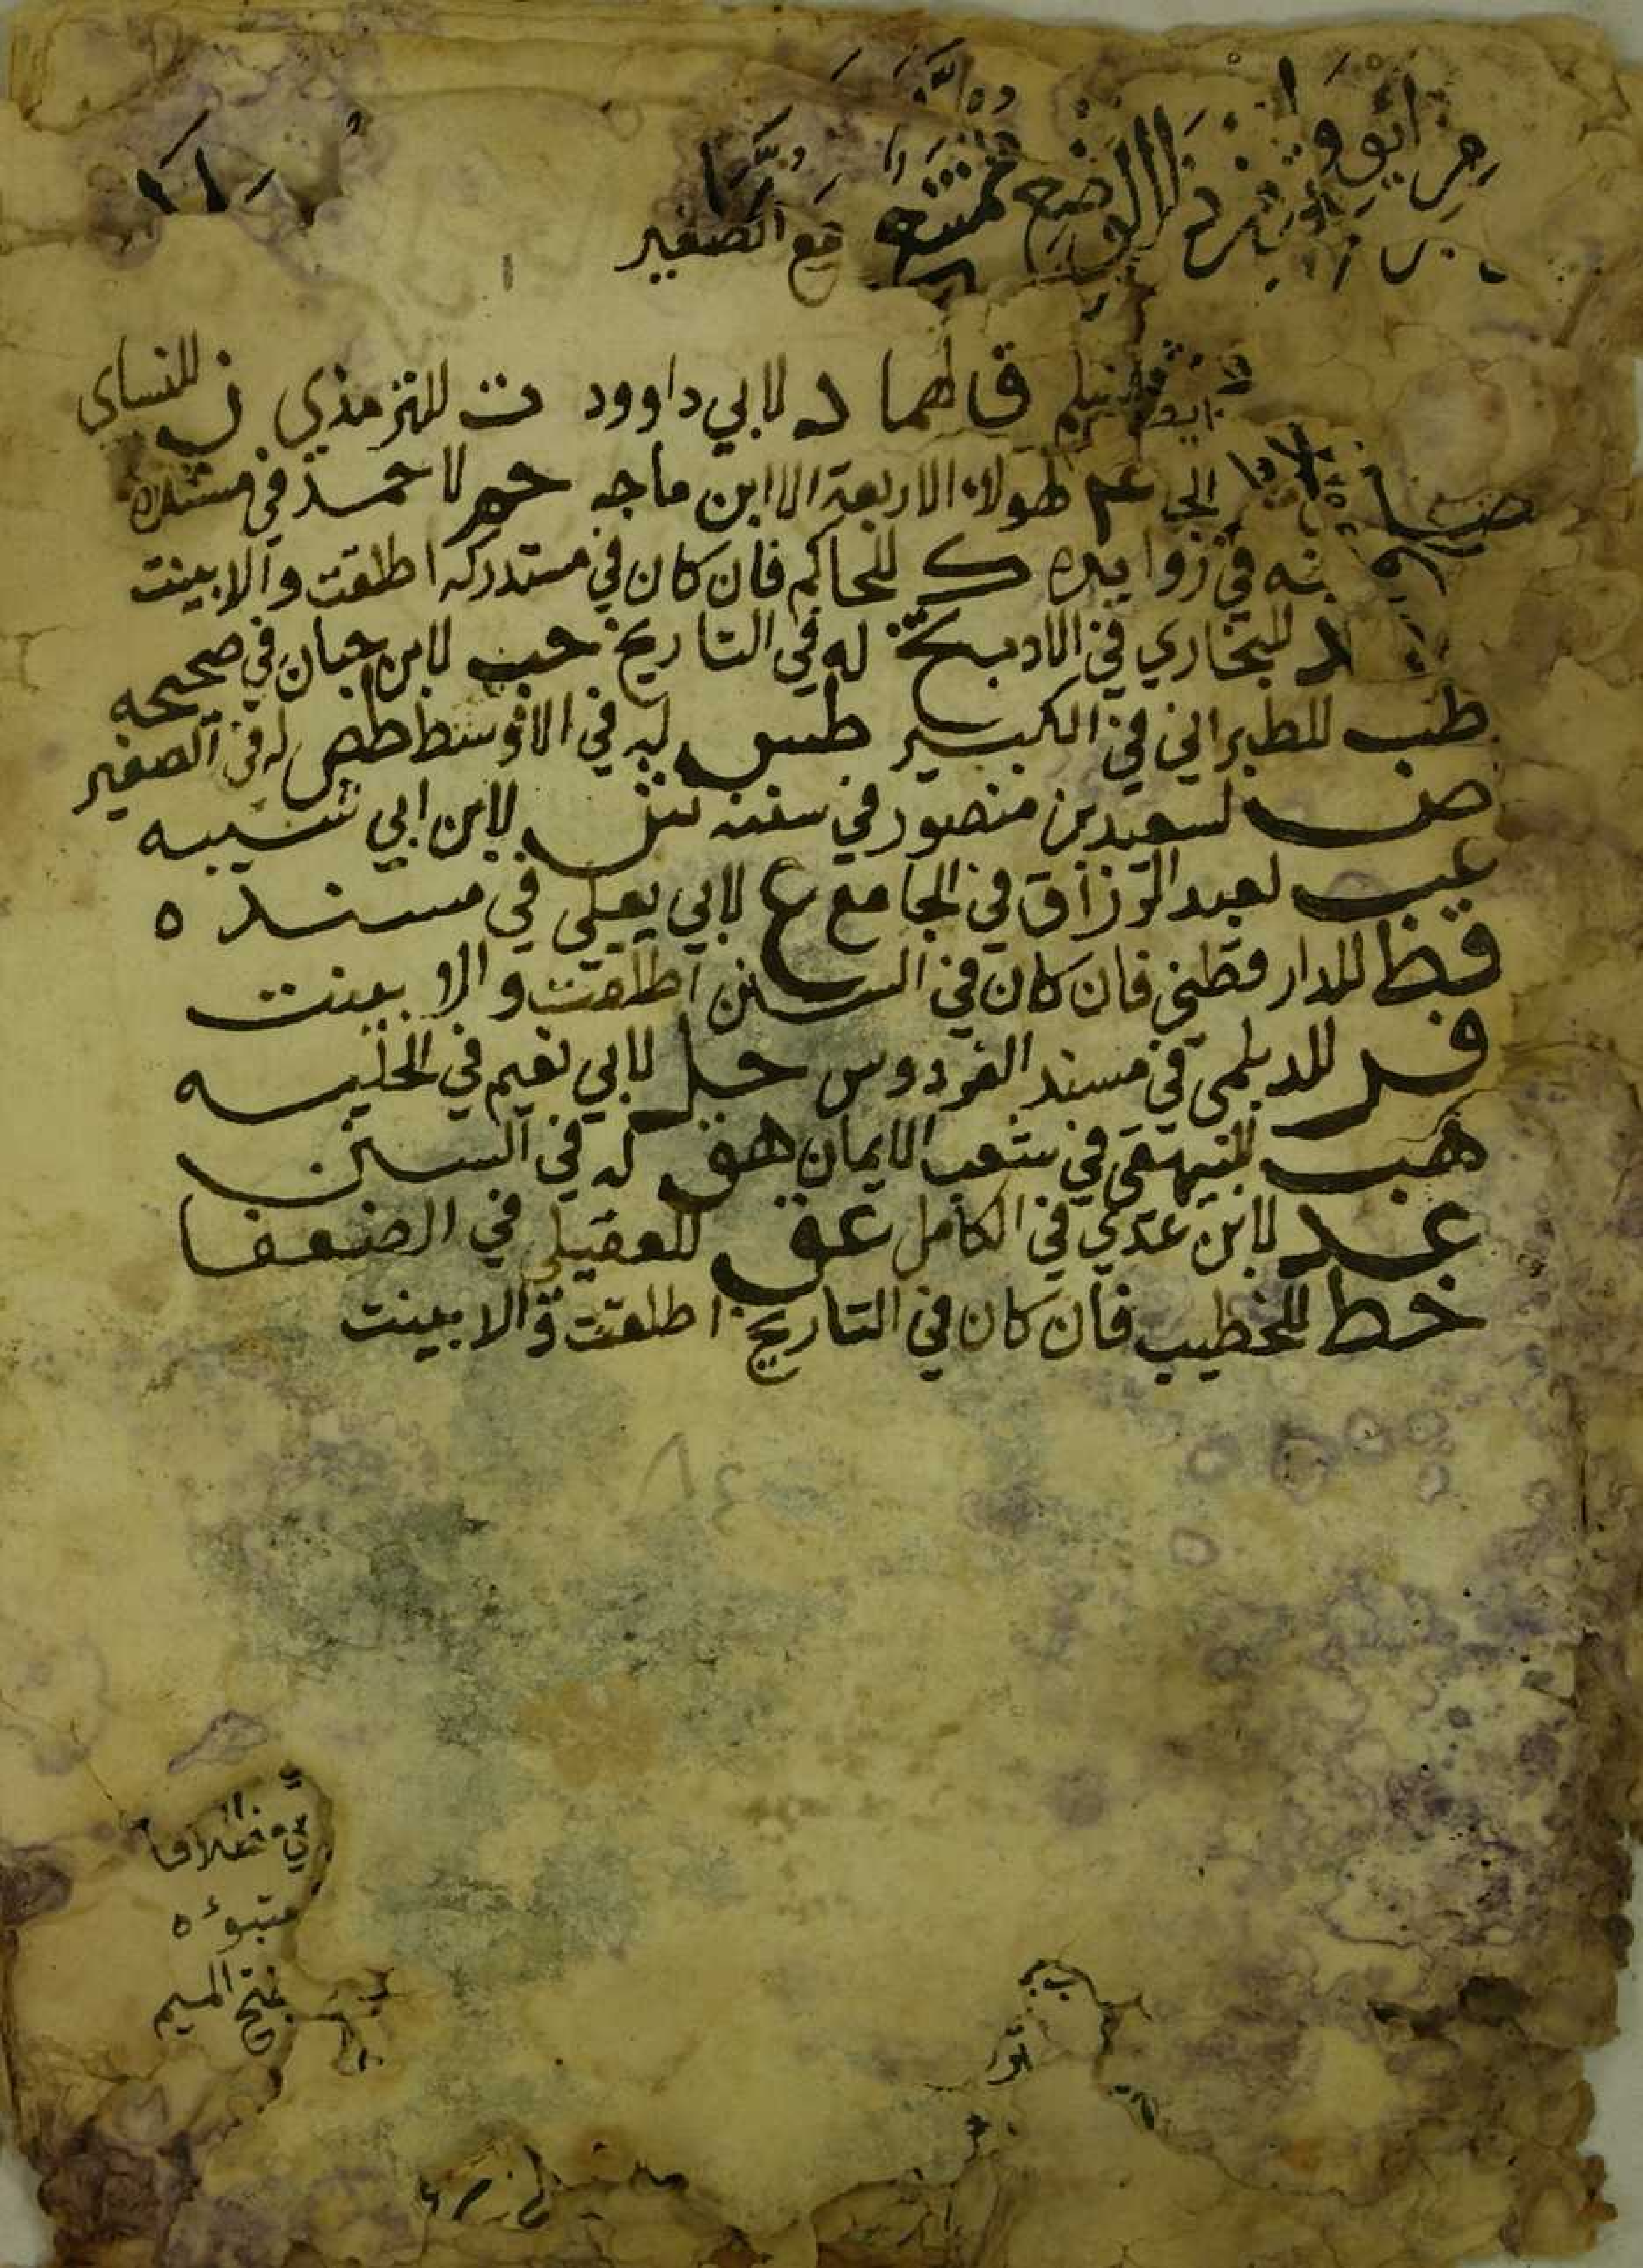 الوضع
مع الصغير
لمسلم ق لهما د لابي داوود ت للترمذي ن للنساى
الى عم لهولاء الاربعة الا ابن ماجه حم لاحمد في مسنده
بنه في زوايده ك للحاكم فان كان في مستدركه اطلقت والا بينت
د للبخاري في الادب تخ له في التاريخ حب لابن حبان في صحيحه
طب للطبراني في الكبير طس له في الاوسط طص له في الصغير
ص لسعيد بن منصور في سننه ش لابن ابي شيبه
عب لعبد الرزاق في الجامع ع لابي يعلى في مسنده
قط للدارقطني فان كان في السنن اطلقت والا بينت
فر للديلمى في مسند الفردوس حل لابي نعيم في الحليه
هب للبيهقى في شعب الايمان هق له في السنن
عد لابن عدي في الكامل عق للعقيلي في الضعفا
خط للخطيب فان كان في التاريخ اطلقت والا بينت
متبوءه
بفتح الميم